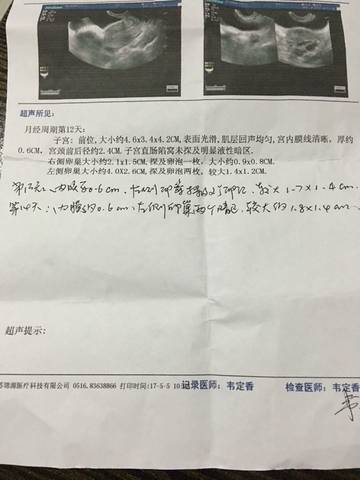 超声所见:
月经周期第12天:
子宫:前位,大小约4.6x3.4x4.2CM,表面光滑,肌层回声均匀,宫内膜线清晰,厚约
0.6CM,宫颈前后径约2.4CM.子宫直肠陷窝未探及明显液性暗区.
右侧卵巢大小约2.1x1.5CM,探及卵泡一枚,大小约0.9x0.8CM.
左侧卵巢大小约4.0X2.6CM,探及卵泡两枚,较大1.4x1.2CM.
内膜 0.6cm, 左侧卵巢 较大 1.7x1.4cm
第14天:内膜约0.6cm 左侧卵巢两个 较大约1.8x1.4cm
超声提示:
医疗科技有限公司 0516.83638866 打印时间:17-5-5 10 记录医师:韦定香 检查医师:韦定香
韦